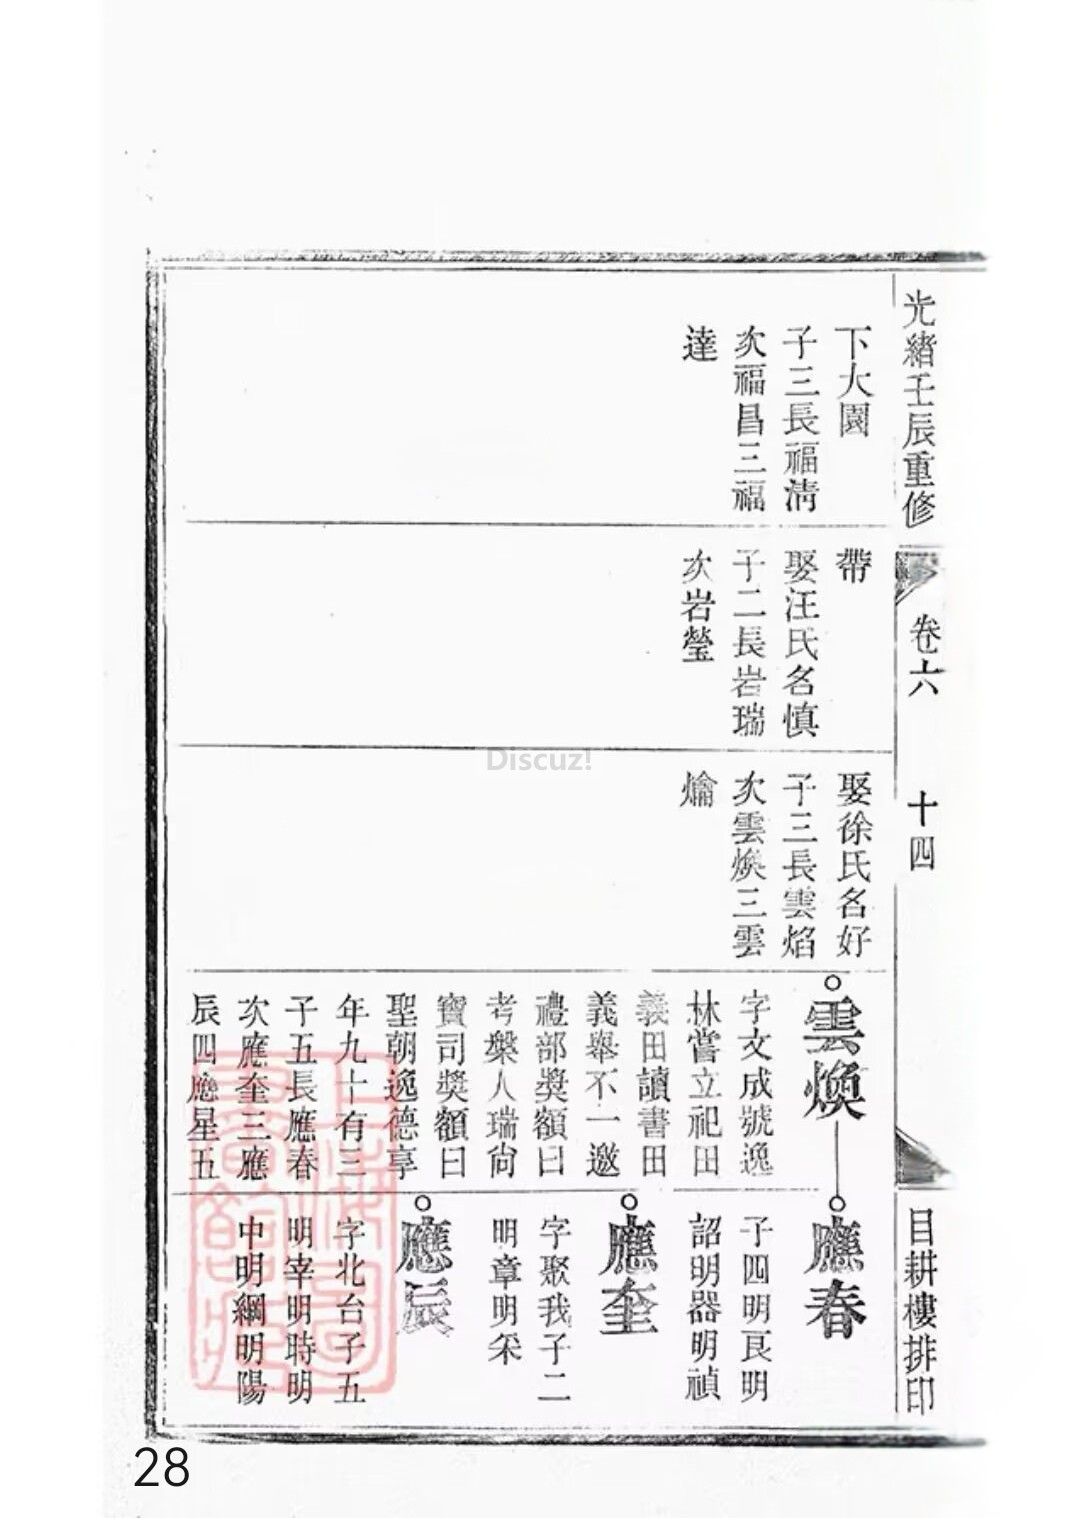 光緒壬辰重修
卷六
十四
目耕樓排印
下大園
子三長福清
次福昌三福
達
帶
娶汪氏名慎
子二長岩瑞
次岩瑩
娶徐氏名好
子三長雲焰
次雲煥三雲
爚
雲煥
字文成號逸
林嘗立祀田
義田讀書田
義舉不一邀
禮部獎額曰
考槃人瑞尚
寶司獎額曰
聖朝逸德享
年九十有三
子五長應春
次應奎三應
辰四應星五
應春
子四明良明
詔明器明禎
應奎
字聚我子二
明章明采
應辰
字北台子五
明宰明時明
中明綱明陽
上海圖書館藏
Discuz!
28